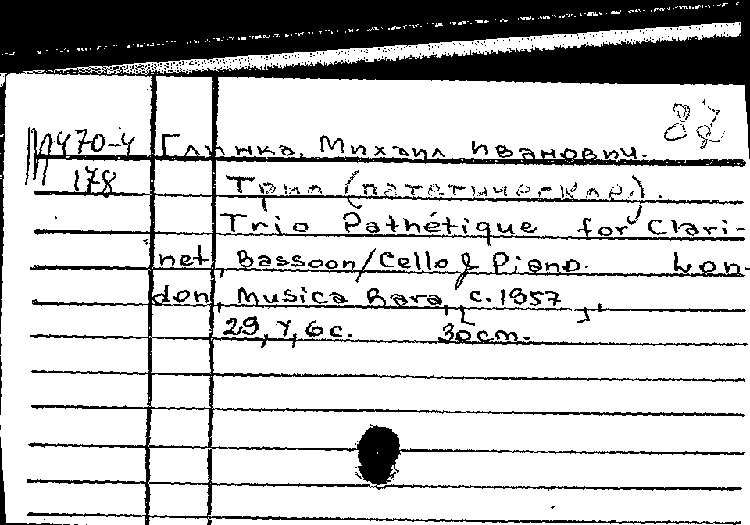 82
М470-4 Глинка, Михаил Иванович.
178 Трио (патетическое).
Trio Pathétique for Clari-
net, Bassoon/Cello & Piano. Lon-
don, Musica Rara, [c. 1957].
29, 7, 6 c. 30cm.